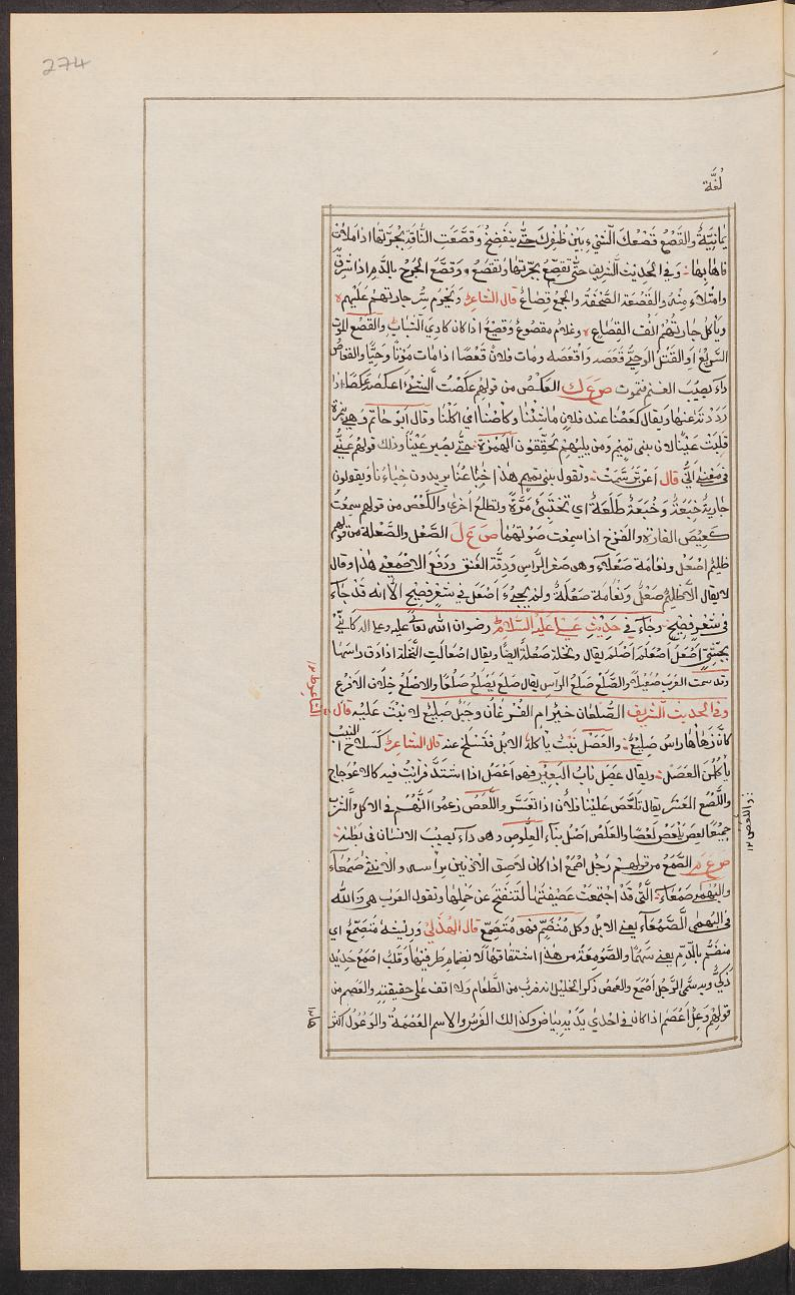 274
لُغَّة
يمانِيَّةٌ والقَصْعُ قَصْعُكَ الشّيْءَ بَيْن ظُفْرِكَ حَتَّى يَنفَضِخَ وَقصَّعَتِ النَّاقَةُ بجَرّتِهَا اذا مَلأتْ
فاهَا بِهَا وَفِي الحَدِيْث الشريف حَتَّى تقصَّعَ بجرّتِهَا وتَقصَّعُ وقصَّعَ الجُرحُ بالدَّمِ اذا شرِقَ
وامتَلاءَ مِنْهُ والقَصْعَة الصَّحْفَة والجمعُ قِصَاعٌ قال الشاعرُ وَيَحْرُم سِرُّ جارتِهِمُ عَلَيهِم
وَيأكلُ جارُهُمُ اُنُفَ القِصَاعِ وغلامٌ مقصُوعٌ وَقصِيْعٌ اذا كان كادِيَ الشبابِ والقَعْصُ الموت
السَّرِيْعُ اوالقَتلُ الوَحِيُّ قَعَصه وَاقْعَصَه ومات فلانٌ قَعْصًا اذا مات مَوتًا وَحِيًّا والقعاصُ
داءٌ يصِيْبُ الغَنم فَتَموت ص ع ك العَكْصُ من قولِهم عَكَصْتُ الشيْءَ اعكِصُه عَكصًا اذا
رَدَدْتَه عنها ويقال كَعَصْنا عند فلانٍ ماشئنَا وكاَصْنا اي اكلْنا وقال ابُوْ حاتمٍ وهي همزةٌ
قلبَتْ عَيْنًا لان بني تميم وَمن يليهِم يُحقِّقون الهَمْزةَ حتَّى يصِير عَيْنًا وذلك قولهم عَنِّيْ
في مَعنى اَنِّي قال اَعَن تَرَسَّمَتْ وتقول بنو تميم هٰذا خِبَاعُنَا يريدون خِبَاءَنَا ويقولون
جارِيةٌ خبَعَةٌ وَخُبَعَةٌ طُلَعَةٌ اي تَختَبئُ مَرَّةً وتطلعُ اُخرى والكَعْصُ من قولهم سمِعْتُ
كعِيْصَ الفارَة والفَرْخِ اذا سمِعت صَوْتَهُمَا ص ع ل الصَّعْل والصَّعْلة من قولهم
ظليْمٌ اصْعَل ونعَامَة صَعْلاءُ وهى صَغرُ الرَّاسِ ودِقّةُ العُنق ودَفَعَ الاصْمَعِيُّ هٰذا وقال
لا يقال الّا ظليْمٌ صَعْلٌ ونَعَامَة صَعْلَةٌ ولمْ يجِيْء اصْعَل فى شعرٍ فصِيْحٍ الّا انه قدْ جاء
في شعْرٍ فصيحٍ وجاء في حَدِيْثِ عَلى عَلَيهِ السَّلامُ رضوان الله تعالٰى عليه وعلى اله كانّيْ
بحَبَشِيٍّ اَصْعَلَ اَصْمَع يقال ونخلة صَعْلةٌ ايضًا ويقال اصْعَالَّتِ النَّخلة اذا دَق راسُهَا
وقد سمت العربُ صُعَيْلَةَ والصَّلَع صَلعُ الراْسِ يقال صَلِعَ يَصْلَعُ صَلَعًا والاصْلَعُ خِلاَف الافرَع
وفي الحديث الشريف الصُّلعَان خير امِ الفُرْعَانُ وجبلٌ صَليْعٌ لا نبْتَ عَليْهِ قال
كانَّ زُهَاهَا راسُ صَليْعُ والعَصَل نبْتٌ تأكلهُ الابلُ فتَسْلحُ عنه قال الشاعرُ كَسَلاحِ النِيْب
ياكُلنَ العَصَلْ ويقال عَصِلَ نابُ البَعِيْرِ فهو اَعْصَل اذا اشتَدَّ فرايْتَ فيه كالاعوِجاج
واللَّصَعُ العُسْر يقال تلَعَّصَ عَليْنا فلاَن اذا تعَسَّر واللَّعَصُ زعمُوا النَّهْمُ في الاكل والشرْب
جمِيْعًا لعِصَ يلعَصُ لعَصًا والعَلَصُ اصْلُ بناءِ العِلَّوصِ وهو داءٌ يصِيْبُ الانسَان في بَطنِهِ
ص ع م الصَّمَعُ من قولِهم رجُلٌ اصْمَعُ اذا كان لاصِق الاذنين براْسه والانثى صَمْعَاءُ
والبُهْمَى صَمْعَاءُ الَّتي قدْ اجتمعَتْ عَصِيفتُهَا لَمْ تَتَفَتَّحْ عَنْ حَمْلِهَا وتقول العرَب هى وَاللّه
في البُهْمَى الصَّمْعَاءِ يعني الابلَ وكلُّ مُنضَمٍّ فهو مُتَصَمِّع قال الهُذَلِيُّ وَرِيْشُهُ مُتَصَمِّعُ اي
منضَمٌّ بالدَّمِ يعني سَهْمًا والصَّومَعَةُ من هٰذا اشتقاقُهَا لانضمام طرفيْها وقلبٌ اصْمَعُ حَدِيْد
ذكِيٌّ وبه سُمِّى الرَّجل اصْمَعَ والعَمْصُ ذكر الخَليْلُ انه ضربٌ من الطَّعَام وَلا اقف على حقيقته والعَصَم من
قولِهِمْ وَعِلٌ اَعْصَم اذا كان في احْدٰي يَدَيْه بيَاض وكذالك الفَرسُ والاسم العُصْمَةُ والوُعُوْلُ اكثرُ
الشاعر
واللَّعَصُ ١٢